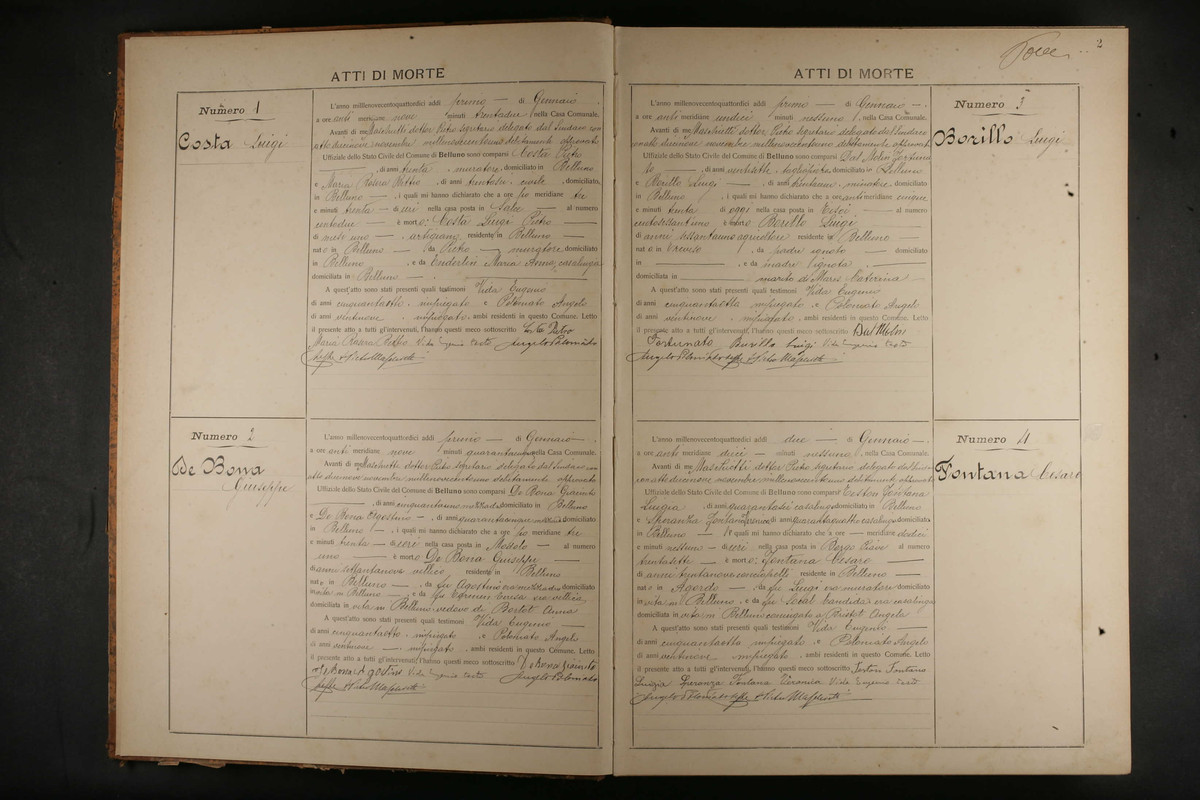 ATTI DI MORTE
Numero 1
Costa Luigi
L'anno millenovecentoquattordici addì primo — di Gennaio
a ore anti meridiane nove minuti trentadue, nella Casa Comunale.
Avanti di me Maschietti dottor Pietro Segretario delegato dal Sindaco con
atto diecinove novembre millenovecentouno debitamente approvato
Ufficiale dello Stato Civile del Comune di Belluno sono comparsi Costa Pietro
—, di anni trenta —, muratore, domiciliato in Belluno
e Maria Pietro —, di anni, domiciliato
in Belluno —, i quali mi hanno dichiarato che a ore pomeridiane tre
e minuti trenta — di ieri nella casa posta in — al numero
centodue — è morto: Costa Luigi Pietro —
di mesi uno —, artigiano, residente in Belluno —
nato in Belluno —, da Pietro — muratore domiciliato
in Belluno —, e da Maria Anna, casalinga
domiciliata in Belluno —
A quest'atto sono stati presenti quali testimoni Vida Eugenio
di anni cinquantasette, impiegato e Colomiato Angelo
di anni ventinove —, impiegato, ambi residenti in questo Comune. Letto
il presente atto a tutti gl'intervenuti, l'hanno questi meco sottoscritto Costa Pietro
Maria Pietro Vida Eugenio teste Angelo Colomiato
teste Pietro Maschietti
Numero 2
De Bona
Giuseppe
L'anno millenovecentoquattordici addì primo — di Gennaio
a ore anti meridiane nove minuti quaranta nella Casa Comunale.
Avanti di me Maschietti dottor Pietro Segretario delegato dal Sindaco con
atto diecinove novembre millenovecentouno debitamente approvato
Ufficiale dello Stato Civile del Comune di Belluno sono comparsi De Bona Giacinto
—, di anni cinquantuno, domiciliato in Belluno
e De Bona Agostino —, di anni quarantacinque, domiciliato
in Belluno —, i quali mi hanno dichiarato che a ore pomeridiane tre
e minuti trenta — di ieri nella casa posta in — al numero
uno — è morto De Bona Giuseppe —
di anni settantanove villico, residente in Belluno
nato in Belluno —, da fu Agostino domiciliato
in vita in Belluno —, e da fu Teresa era villica
domiciliata in vita in Belluno vedovo di Bortot Anna
A quest'atto sono stati presenti quali testimoni Vida Eugenio —
di anni cinquantasette, impiegato e Colomiato Angelo
di anni ventinove —, impiegato, ambi residenti in questo Comune. Letto
il presente atto a tutti gl'intervenuti, l'hanno questi meco sottoscritto De Bona Giacinto
De Bona Agostino Vida Eugenio teste Angelo Colomiato
teste Pietro Maschietti
2
ATTI DI MORTE
Numero 3
Borillo Luigi
L'anno millenovecentoquattordici addì primo — di Gennaio —
a ore anti meridiane undici minuti nessuno, nella Casa Comunale.
Avanti di me Maschietti dottor Pietro Segretario delegato dal Sindaco
con atto diecinove novembre millenovecentouno debitamente approvato
Ufficiale dello Stato Civile del Comune di Belluno sono comparsi Dal Molin Fortuna
to —, di anni ventisette, domiciliato in Belluno
e Borillo Luigi —, di anni trentanove, minatore, domiciliato
in Belluno —, i quali mi hanno dichiarato che a ore antimeridiane cinque
e minuti trenta di oggi nella casa posta in — al numero
centosessantuno è morto Borillo Luigi —
di anni sessantauno agricoltore residente in Belluno —
nato in, da padre ignoto — domiciliato
in —, e da madre ignota —
domiciliata in — marito di Maris Caterina
A quest'atto sono stati presenti quali testimoni Vida Eugenio
di anni cinquantasette impiegato e Colomiato Angelo
di anni ventinove, impiegato, ambi residenti in questo Comune. Letto
il presente atto a tutti gl'intervenuti, l'hanno questi meco sottoscritto Dal Molin
Fortunato Borillo Luigi Vida Eugenio teste
Angelo Colomiato teste Pietro Maschietti
Numero 4
Fontana Cesare
L'anno millenovecentoquattordici addì due — di Gennaio —
a ore anti meridiane dieci — minuti nessuno, nella Casa Comunale.
Avanti di me Maschietti dottor Pietro Segretario delegato dal Sindaco
con atto diecinove novembre millenovecentouno debitamente approvato
Ufficiale dello Stato Civile del Comune di Belluno sono comparsi Teston Fontana
Luigia, di anni quarantasei casalinga domiciliata in Belluno
e Speranza Fontana Veronica di anni quarantasette casalinga domiciliata
in Belluno —, i quali mi hanno dichiarato che a ore — meridiane dodici
e minuti nessuno — di ieri nella casa posta in Borgo Piave al numero
trentasette — è morto: Fontana Cesare —
di anni trentanove residente in Belluno —
nato in Agordo —, da fu Luigi era muratore domiciliato
in vita in Belluno, e da fu era casalinga
domiciliata in vita in Belluno coniugato a Bristot Angela
A quest'atto sono stati presenti quali testimoni Vida Eugenio —
di anni cinquantasette impiegato e Colomiato Angelo
di anni ventinove, impiegato, ambi residenti in questo Comune. Letto
il presente atto a tutti gl'intervenuti, l'hanno questi meco sottoscritto Teston Fontana
Luigia Speranza Fontana Veronica Vida Eugenio teste
Angelo Colomiato teste Pietro Maschietti